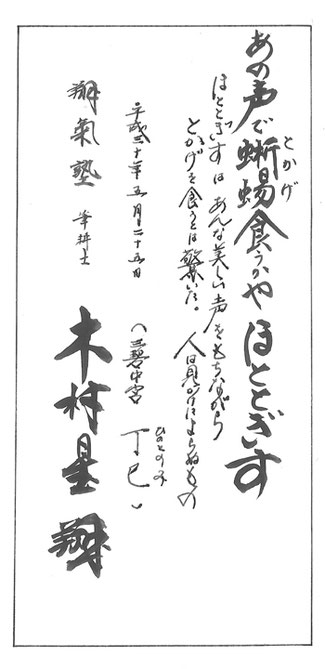 あの声で蜥蜴食うかやほととぎす
とかげ
ほとときずはあんな美しい声をもちながら
とかげを食うとは驚いた。人は見かけによらぬもの
平成三十年五月二十五日
(三碧中宮 丁巳)
ひのとのみ
翔氣塾 筆耕士
木村星翔